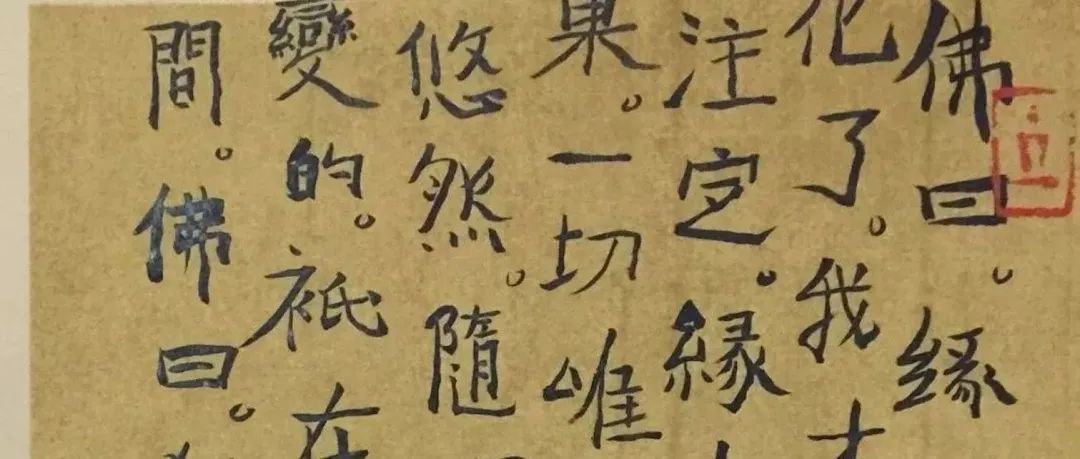 佛曰。緣
化了。我才
注定。緣
果。一切唯
悠然。隨
變的。祇在
間。佛曰。